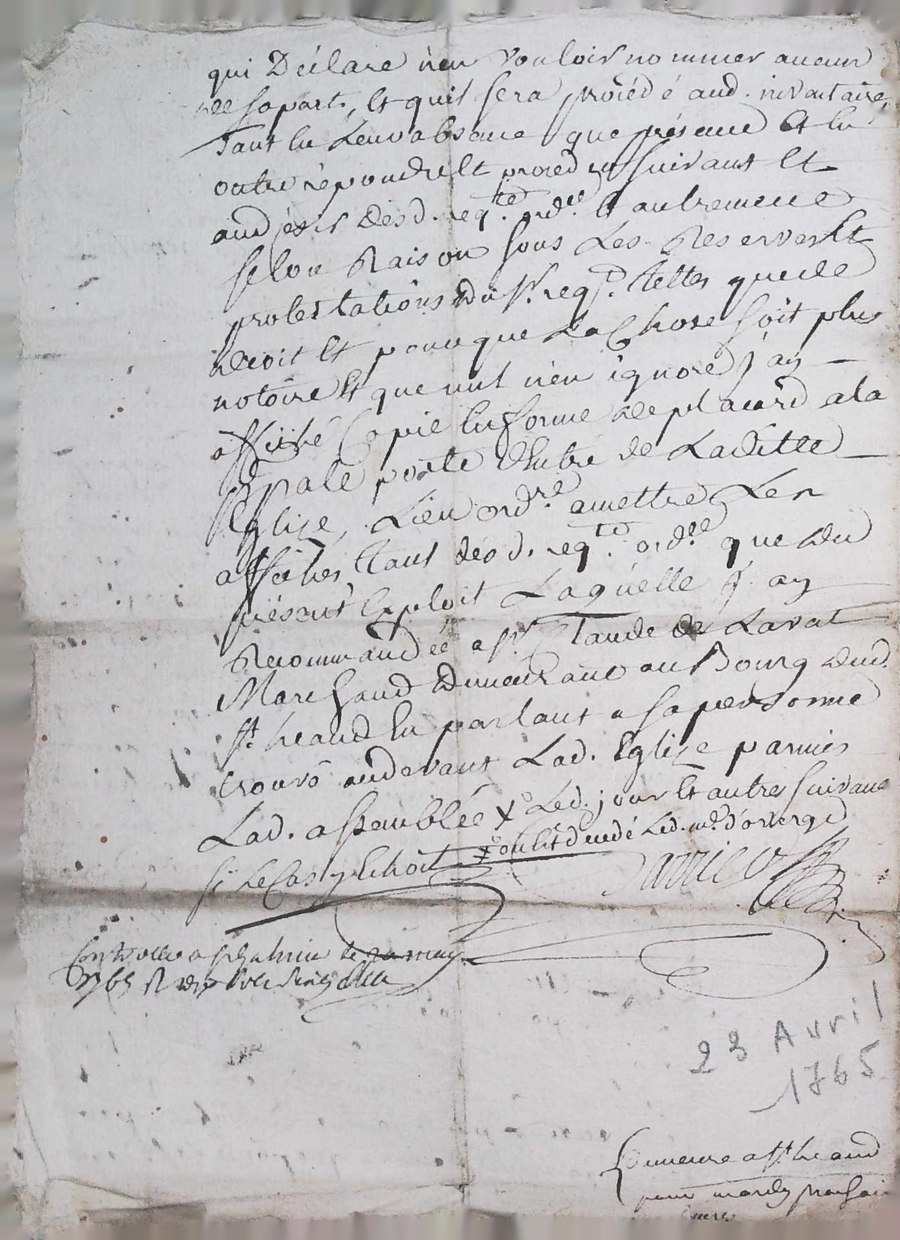 qui Déclare n'en vouloir nommer aucun
de sa part, et quil sera procédé aud. inventaire,
Tant en Leur absence que présence Et en
outre répondre et proceder suivant Et
aux fins desd. reqte. ordce. Et autrement
selon Raison sous Les Reserves Et
protestations du Sr. reqt. telles que de
droit Et pour que La Chose soit plus
notoire Et que nul n'en ignore j'ay
affiché Copie En forme de placard a la
ppale porte d'entrée de Laditte
Eglise, Lieu ordre. a mettre Les
affiches, Tant desd. reqte. ordce. que du
présent Exploit Laquelle j'ay
Recommandée a Sr. Claude de Lavat
Marchand demeurant au Bourg dud.
St. heand En parlant a sa personne
trouvé audevant Lad. Eglise parmis
Lad. assemblée Led. jour Et autres suivant
si Le Cas y Echoit
Controllé a le may
1765
23 Avril
1765
a St. heand
pour mardy prochain